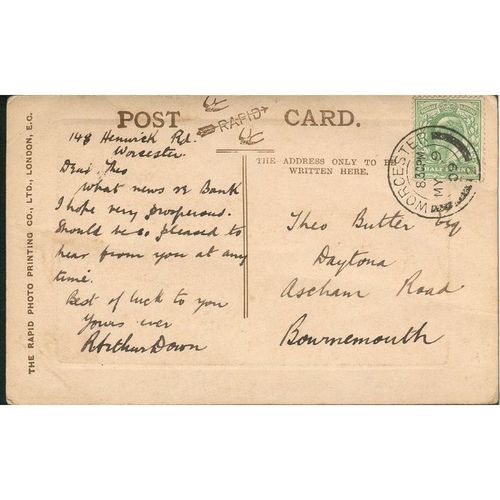 POST CARD.
RAPID
148 Henwick Rd.
Worcester.
Dear Theo
What news re Bank
I hope very prosperous.
Should be so pleased to
hear from you at any
time.
Best of luck to you
Yours ever
RArthur Down
THE ADDRESS ONLY TO BE
WRITTEN HERE.
Theo Butter Esq
Daytona
Ascham Road
Bournemouth
WORCESTER
830PM
HALF PENNY
THE RAPID PHOTO PRINTING CO., LTD., LONDON, E.C.